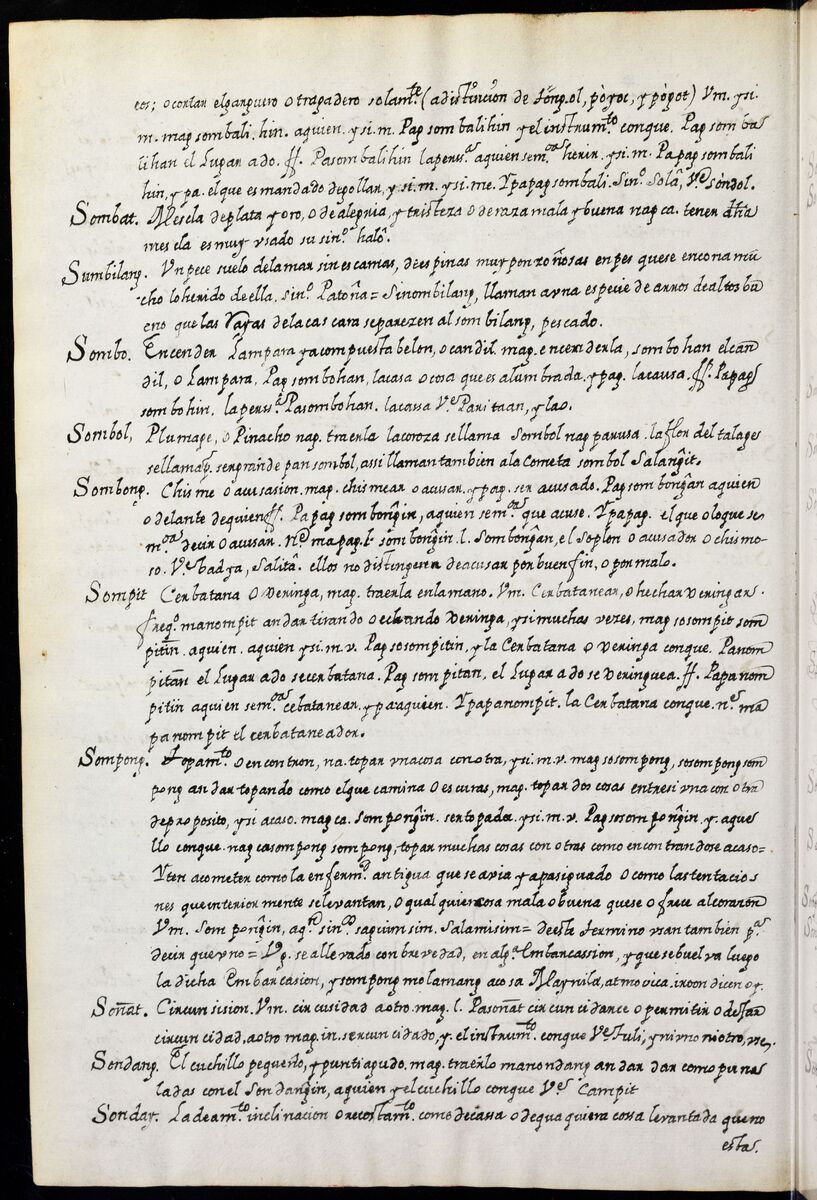 cos; o cortar el garguero o tragadero solam.te (a distincion de sóngol, pòyoc, y pògot) Vm. ysi.
m. mag sombali. hin. aquien. ysi. m. Pag sombalihin y el instrum.to conque. Pag somba
lihan el Lugar ado. ff. Pasombalihin la pers.a aquien sem.oa herir. ysi. m. Papag sombali
hin, y pa. el que es mandado degollar, y si. m. ysi. me. Ypapag sombali. Sin.o Solâ, V.e sòndol.
Sombat. Mescla de plata y oro, o de alegria, y tristeza o de raza mala y buena nag ca. tener d̃ha
mescla es muy vsado su sin.o halô.
Sumbilang. Vn pece suelo dela mar sin escamas, de espinas muy ponzoñosas en pes quese encona mũ
cho lo herido de ella. Sin.o Patoña = Sinombilang, llaman avna especie de arros de altos bu
eno que las Rayas dela cascara separezen al sombilang, pescado.
Sombo. Encender Lampara ya compuesta belon, o candil. mag. encenderla, sombohan el can
dil, o Lampara, Pag sombohan, lacasa o cosa que es alumbrada. y pag. lacausa. ff. Papag
sombohin. la pers.a Pasombohan. la cassa V.e Paritaan, ylao.
Sombol, Plumage, o Pinacho nag. traerla la coroza sellama Sombol nag parusa. la flor del talage
sellamag. sengrande pan sombol, assi llaman tambien ala Cometa sombol Salangit.
Sombong. Chisme o acusasion. mag. chismear o acusar. y pag. ser acusado. Pag sombongan aquien
o delante de quien ff. Papag sombongin, aquien sem.oa que acuse. Ypapag. el que o loque se
m.oa decir o acusar. n.e mapag. l. sombongin. l. Sombongan, el soplon o acusador o chismo-
so. V.e badya, Salitâ. ellos no distinguen de acusar por buen fin, o por malo.
Sompit Cerbatana o veringa, mag. traerla en la mano. Vm. Cerbatanear, o hechar veringas.
freq.o manompit andar tirando o echando veringa, y si muchas vezes, mag sosompit som
pitin. aquien. aquien ysi. m. v. Pag sosompitin, y la Cerbatana o veringa conque. Panom
pitan el Lugar ado secerbatana. Pag sompitan, el Lugar ado se veringuea. ff. Papanom
pitin aquien sem.oa cebatanear. y paraquien. Ypapanompit. la Cerbatana conque. n.e ma
panompit el cerbataneador.
Sompong. Topam.to o encontron, na. topar vna cosa con otra, ysi. m. v. mag sosompong, sosompong som
pong andar topando como el que camina o escuras, mag. topar dos cosas entresi vna con otra
de proposito, y si acaso. mag ca. sompongin. ser topada. ysi. m. v. Pag sosompongin. y. aque
llo conque. nag casompong sompong, topar muchas cosas con otras como encontrandose acaso =
Yten acometer como la enferm.d antigua que se avia yapasiguado o como las tentacio
nes que interiormente selevantan, o qualquier cosa mala o buena quese ofrece al corazon
Vm. Sompongin, aq.n sin.co saguimsim. Salamisim = de este termino vsan tambien p.a
decir que vno = Vg. se alle vado con brevedad, en alg.a Embarcassion, y que se buelva luego
la dicha Embarcasion, y sompong mo lamang acosa Maynila, at movica. iroon dicen oy.
Soñat. Circunsision. Vm. circusidad aotro. mag. l. Pasoñat circuncidarce o permitir o desear
circuncidad, aotro mag. in. ser cuncidado, y. el instrum.to conque V.e Tuli, y ni vno ni otro, vse.
Sondang. El cuchillo pequeño, y puntiagudo. mag. traerlo manondang andar dar como puña
ladas con el sondangin, aquien y el cuchillo conque V.e Campit
Sonday. Ladeam.to inclinacion o recostam.to como de cassa o de qua quiera cossa levantada que no
esta.